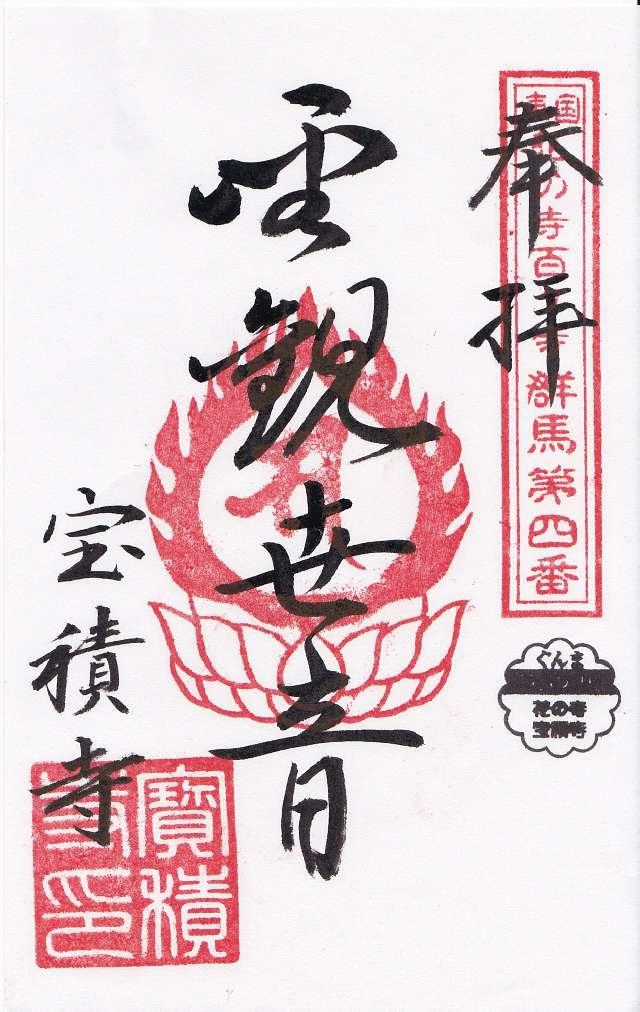 奉拝
東国花の寺百ヶ寺群馬第四番
聖観世音
宝積寺
寶積寺印
ぐんま
花の寺
宝積寺